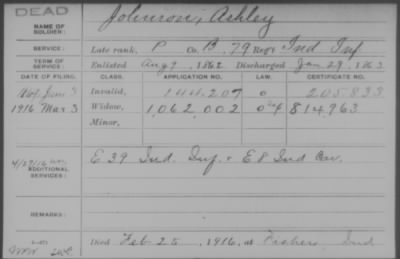 DEAD
NAME OF SOLDIER: Johnson, Ashley
SERVICE: Late rank, P Co. B, 79 Reg't Ind Inf
TERM OF SERVICE: Enlisted Aug 9, 1862 Discharged Jan 29, 1863
DATE OF FILING. CLASS. APPLICATION NO. LAW. CERTIFICATE NO.
Invalid, 144,207 0 205,833
1916 Mar 3 Widow, 1,062,002 814,963
Minor,
ADDITIONAL SERVICES: E 39 Ind. Inf. & E 8 Ind Cav.
REMARKS:
Died Feb 25, 1916, at Fishers, Ind